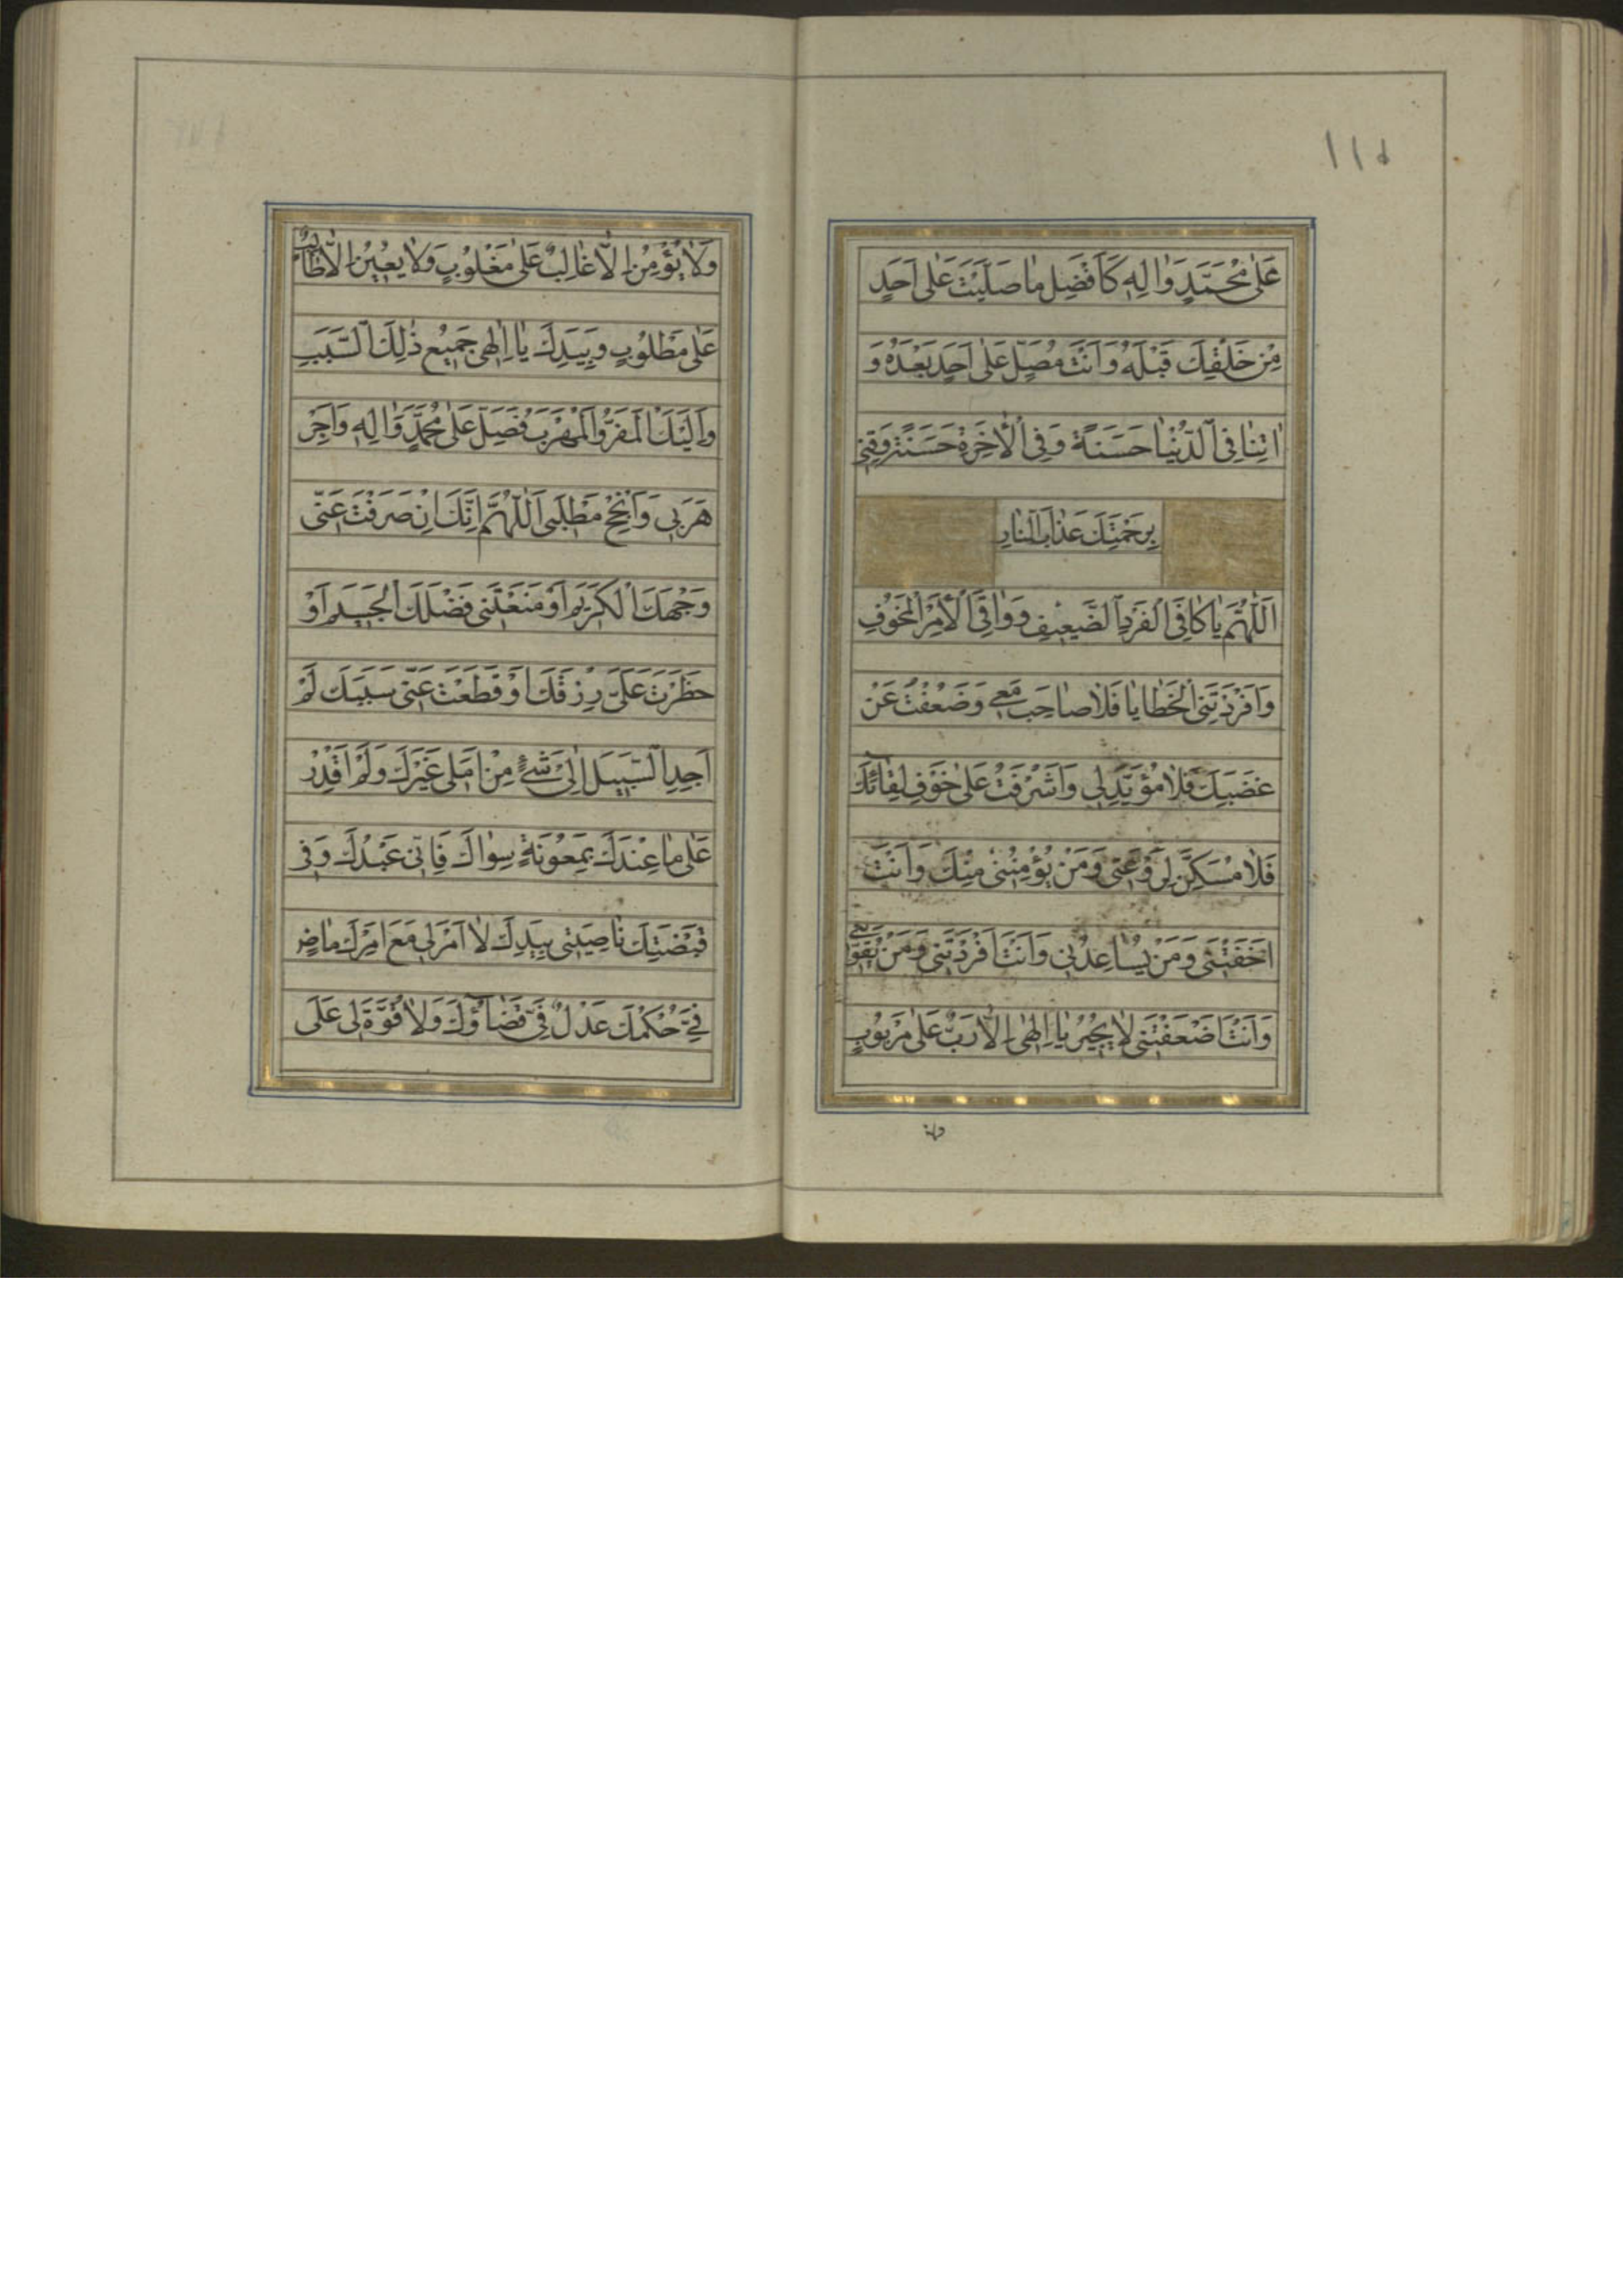 ١١٥
عَلٰى مُحَمَّدٍ وَاٰلِهٖ كَاَفْضَلِ مٰا صَلَّيْتَ عَلٰى اَحَدٍ
مِنْ خَلْقِكَ قَبْلَهُ وَاَنْتَ مُصَلٍّ عَلٰى اَحَدٍ بَعْدَهُ وَ
اٰتِنٰا فِى الدُّنْيٰا حَسَنَةً وَفِى الْاٰخِرَةِ حَسَنَةً وَقِنِى
بِرَحْمَتِكَ عَذٰابَ النّٰارِ
اَللّٰهُمَّ يٰا كٰافِىَ الْفَرْدِ الضَّعِيْفِ وَوٰاقِىَ الْاَمْرِ الْمَخُوْفِ
وَاَفْرَدَتْنِى الْخَطٰايٰا فَلٰا صٰاحِبَ مَعِى وَضَعُفْتُ عَنْ
غَضَبِكَ فَلٰا مُؤَيِّدَ لِى وَاَشْرَفْتُ عَلٰى خَوْفِ لِقٰائِكَ
فَلٰا مُسَكِّنَ لِرَوْعَتِى وَمَنْ يُؤْمِنُنِى مِنْكَ وَاَنْتَ
اَخَفْتَنِى وَمَنْ يُسٰاعِدُنِى وَاَنْتَ اَفْرَدْتَنِى وَمَنْ يُقَوِّيْنِى
وَاَنْتَ اَضْعَفْتَنِى لٰا يُجِيْرُ يٰا اِلٰهِى اِلّٰا رَبٌّ عَلٰى مَرْبُوْبٍ
وَلٰا يُؤْمِنُ اِلّٰا غٰالِبٌ عَلٰى مَغْلُوْبٍ وَلٰا يُعِيْنُ اِلّٰا طٰالِبٌ
عَلٰى مَطْلُوْبٍ وَبِيَدِكَ يٰا اِلٰهِى جَمِيْعُ ذٰلِكَ السَّبَبِ
وَاِلَيْكَ الْمَفَرُّ وَالْمَهْرَبُ فَصَلِّ عَلٰى مُحَمَّدٍ وَاٰلِهٖ وَاَجِرْ
هَرَبِى وَاَنْجِحْ مَطْلَبِى اَللّٰهُمَّ اِنَّكَ اِنْ صَرَفْتَ عَنِّى
وَجْهَكَ الْكَرِيْمَ اَوْ مَنَعْتَنِى فَضْلَكَ الْجَسِيْمَ اَوْ
حَظَرْتَ عَلَىَّ رِزْقَكَ اَوْ قَطَعْتَ عَنِّى سَبَبَكَ لَمْ
اَجِدِ السَّبِيْلَ اِلٰى شَىْءٍ مِنْ اَمَلِى غَيْرَكَ وَلَمْ اَقْدِرْ
عَلٰى مٰا عِنْدَكَ بِمَعُوْنَةِ سِوٰاكَ فَاِنِّى عَبْدُكَ وَفِى
قَبْضَتِكَ نٰاصِيَتِى بِيَدِكَ لٰا اَمْرَ لِى مَعَ اَمْرِكَ مٰاضٍ
فِىَّ حُكْمُكَ عَدْلٌ فِىَّ قَضٰاؤُكَ وَلٰا قُوَّةَ لِى عَلَى